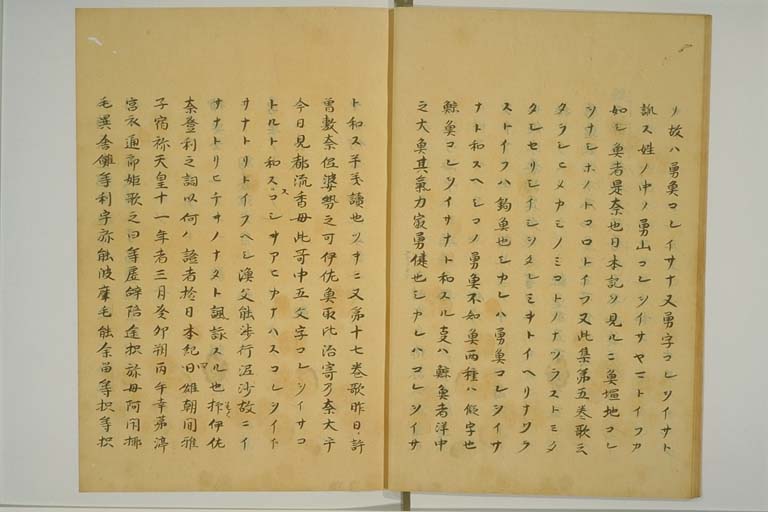 ノ故ハ勇魚コレイサナ又勇字コレヲイサト
訓ス姓ノ中ノ勇山コレヲイサヤマトイフカ
如シ魚者是奈也日本記ヲ見ルニ魚塩地コレ
ヲナシホノトコロトイフ又此集第五巻歌ニ
タラシヒメカミノミコトノナツラストミタ
タシセリシイシヲタレミキトイヘリナツラ
ストイフハ釣魚也シカレハ勇魚コレヲイサ
ナト和スヘシコノ勇魚不如魚両種ハ假字也
鯨魚コレヲイサナト和スル支ハ鯨魚者洋中
之大魚其氣力最勇健也シカレハコレヲイサ
ト和ス乎義讀也ツキニ又第十七巻歌昨日許
曽敷奈伍婆勢之可伊佐魚取比治奇乃奈太乎
今日見都流香母此哥中五文字コレヲイサコ
トルト和スコシヲアヒカナハスコレヲイト
サナトリトイフヘシ漁父能渉行沼沙故ニイ
サナトリヒチキノナタト諷詠スル也抑伊佐
奈登利之詞以何ノ諺者於日本紀曰雄朝間雅
子宿祢天皇十一年者三月癸卯朔丙午幸茅渟
宮衣通郎姫歌之曰等虚辞陪途枳弥母阿閉椰
毛異舎儺等利宇弥能波摩毛能余留等枳等枳